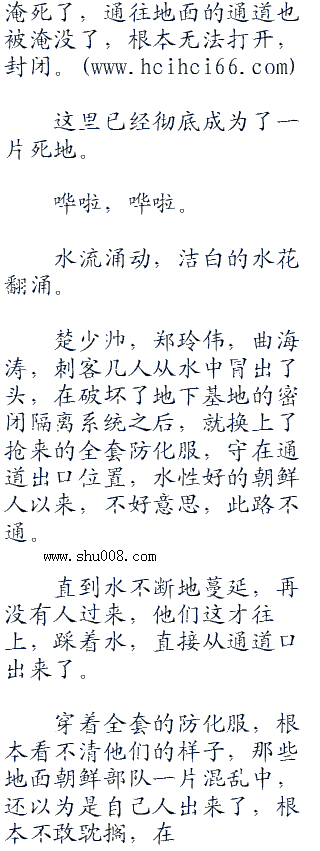 淹死了，通往地面的通道也
被淹没了，根本无法打开，
封闭。(www.hcihci66.com)
这里已经彻底成为了一
片死地。
哗啦，哗啦。
水流涌动，洁白的水花
翻涌。
楚少帅，郑玲伟，曲海
涛，刺客几人从水中冒出了
头，在破坏了地下基地的密
闭隔离系统之后，就换上了
抢来的全套防化服，守在通
道出口位置，水性好的朝鲜
人以来，不好意思，此路不
通。
www.shu008.com
直到水不断地蔓延，再
没有人过来，他们这才往
上，踩着水，直接从通道口
出来了。
穿着全套的防化服，根
本看不清他们的样子，那些
地面朝鲜部队一片混乱中，
还以为是自己人出来了，根
本不敢耽搁，在